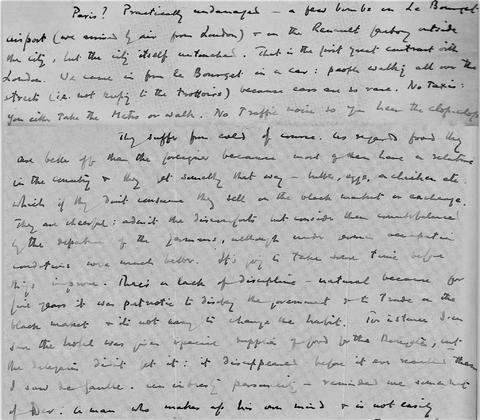 Paris? Practically undamaged — a few bombs on Le Bourget
airport (we arrived by air from London) & on the Renault factory outside
the city, but the city itself untouched. That is the first great contrast with
London. We came in from Le Bourget in a car: people walking all over the
streets (i.e. not keeping to the trottoirs) because cars are so rare. No taxis:
You either take the Metro or walk. No traffic noise so you hear the clop-clop
They suffer from cold of course. As regards food they
are better off than the foreigner because most of them have a relative
in the country & they get something that way — butter, eggs, a chicken etc.
which if they don't consume they sell on the black market or exchange.
They are cheerful: admit the discomforts but consider them counterbalanced
by the departure of the Germans, although under even occupation
conditions were much better. It's going to take some time before
things improve. There's a lack of discipline — natural because for
five years it was patriotic to disobey the government & to trade on the
black market & it's not easy to change the habit. For instance I
saw the hotel was given special supplies of food for the Delegates, but
the delegates didn't get it: it disappeared before it ever reached them
I saw de Gaulle. An interesting personality — reminded me somewhat
of Dev: a man who makes up his own mind & is not easily